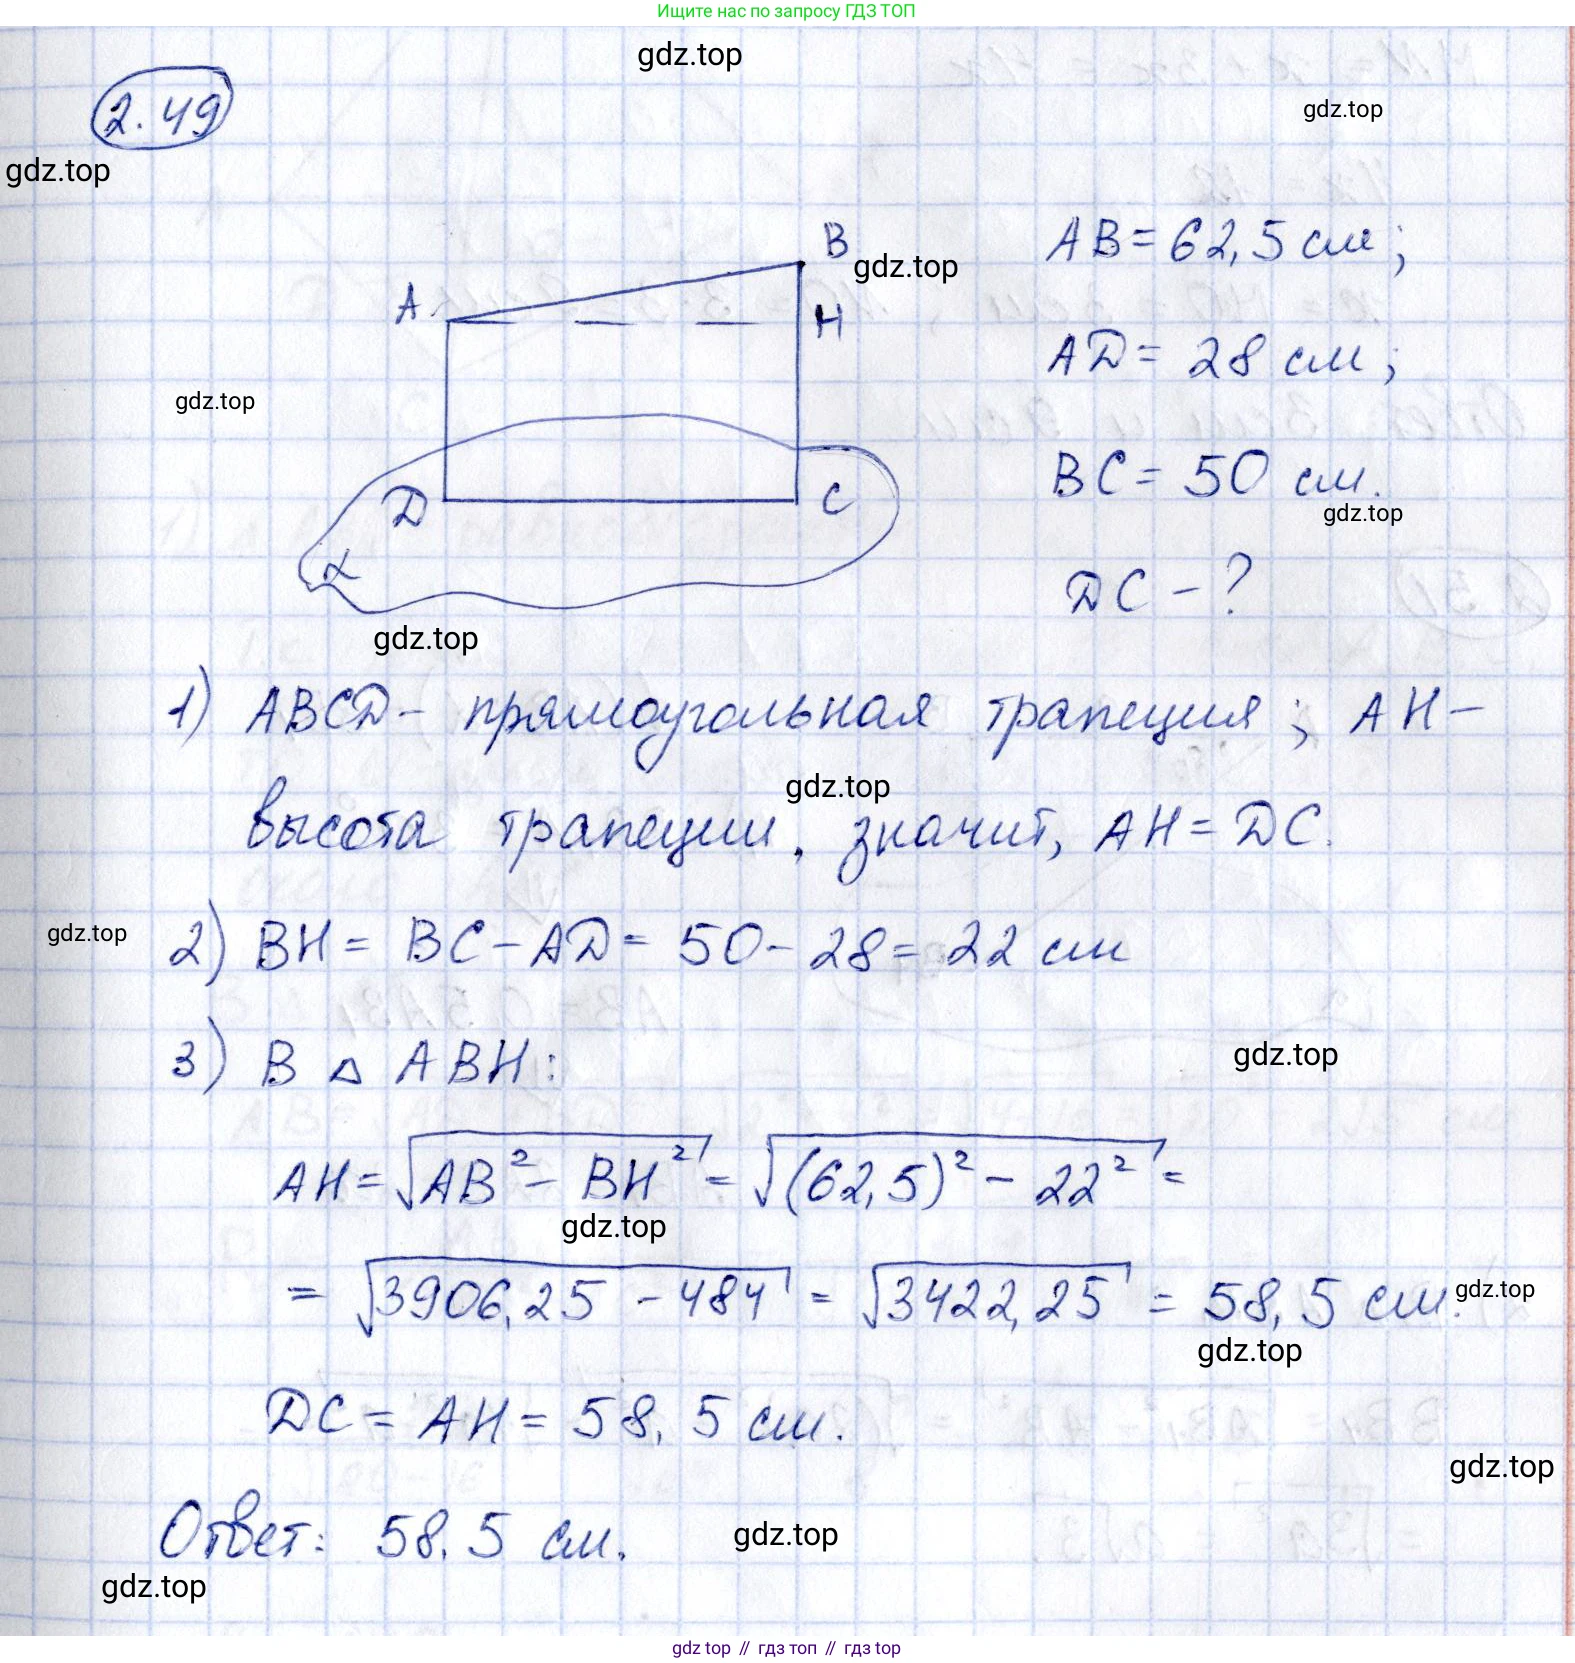 Ищите нас по запросу ГДЗ ТОП
gdz.top
2.49
gdz.top
gdz.top
B
gdz.top
AB = 62,5 см;
A
H
AD = 28 см;
gdz.top
BC = 50 см.
gdz.top
D
C
α
DC - ?
gdz.top
1) ABCD - прямоугольная трапеция; AH -
gdz.top
высота трапеции, значит, AH = DC.
gdz.top
2) BH = BC - AD = 50 - 28 = 22 см
3) В △ ABH:
gdz.top
AH = √(AB² - BH²) = √((62,5)² - 22²) =
gdz.top
= √(3906,25 - 484) = √3422,25 = 58,5 см.
gdz.top
gdz.top
DC = AH = 58,5 см.
gdz.top
Ответ: 58,5 см.
gdz.top
gdz.top
gdz top // гдз топ // гдз top